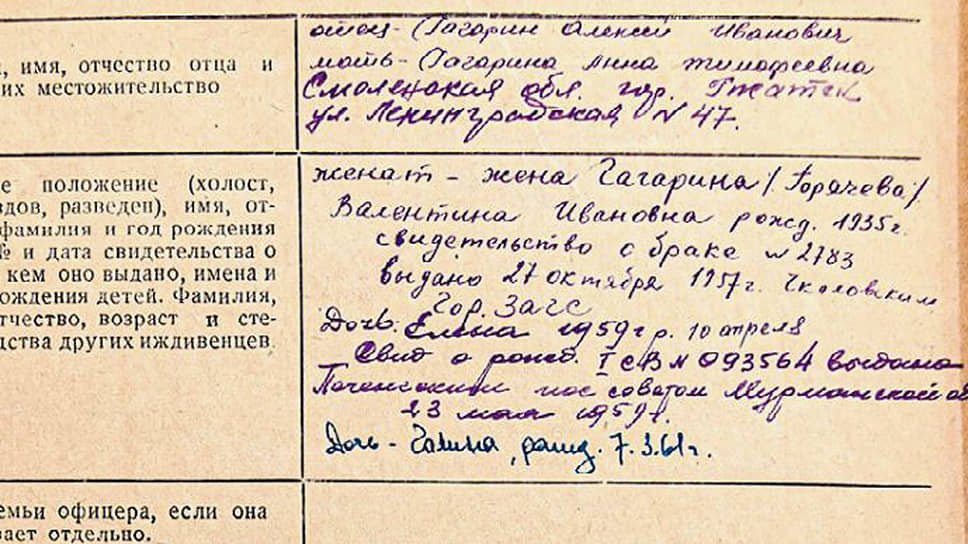 , имя, отчество отца и
их местожительство
отец - Гагарин Алексей Иванович
мать - Гагарина Анна Тимофеевна
Смоленская обл. гор. Гжатск
ул. Ленинградская N 47.
е положение (холост,
здов, разведен), имя, от-
фамилия и год рождения
№ и дата свидетельства о
кем оно выдано, имена и
ождения детей. Фамилия,
тчество, возраст и сте-
дства других иждивенцев
женат - жена Гагарина /Горячева/
Валентина Ивановна рожд. 1935г.
свидетельство о браке N 2783
выдано 27 октября 1957г. Чкаловским
Гор. ЗАГС
Дочь. Елена 1959г р. 10 апреля
Свид о рожд. I СВ N 093564 выдано
Печенгским пос советом Мурманской о
23 мая 1959г.
Дочь - Галина, рожд. 7.3.61г.
емьи офицера, если она
вает отдельно.